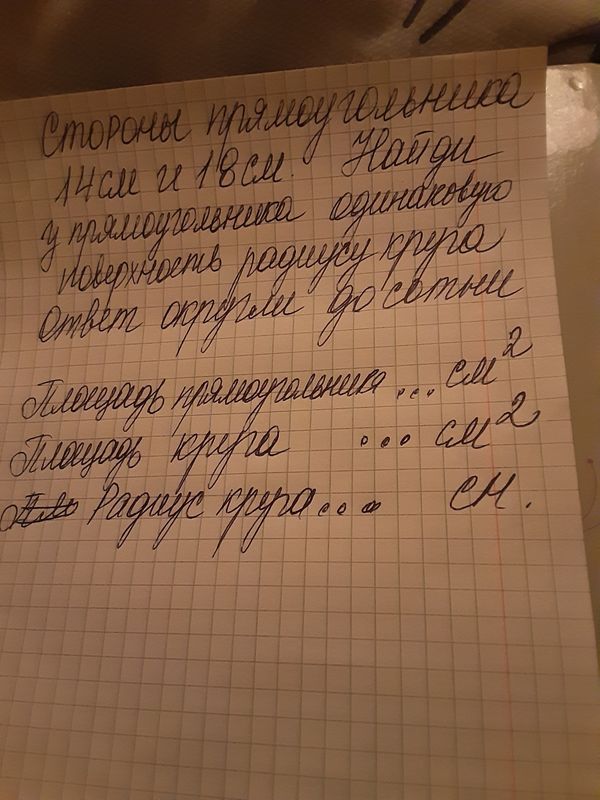 Стороны прямоугольника
14см и 18см. Найди
у прямоугольника одинаковую
поверхность радиусу круга
Ответ округли до сотни
Площадь прямоугольника ... см²
Площадь круга ... см²
Радиус круга... см.